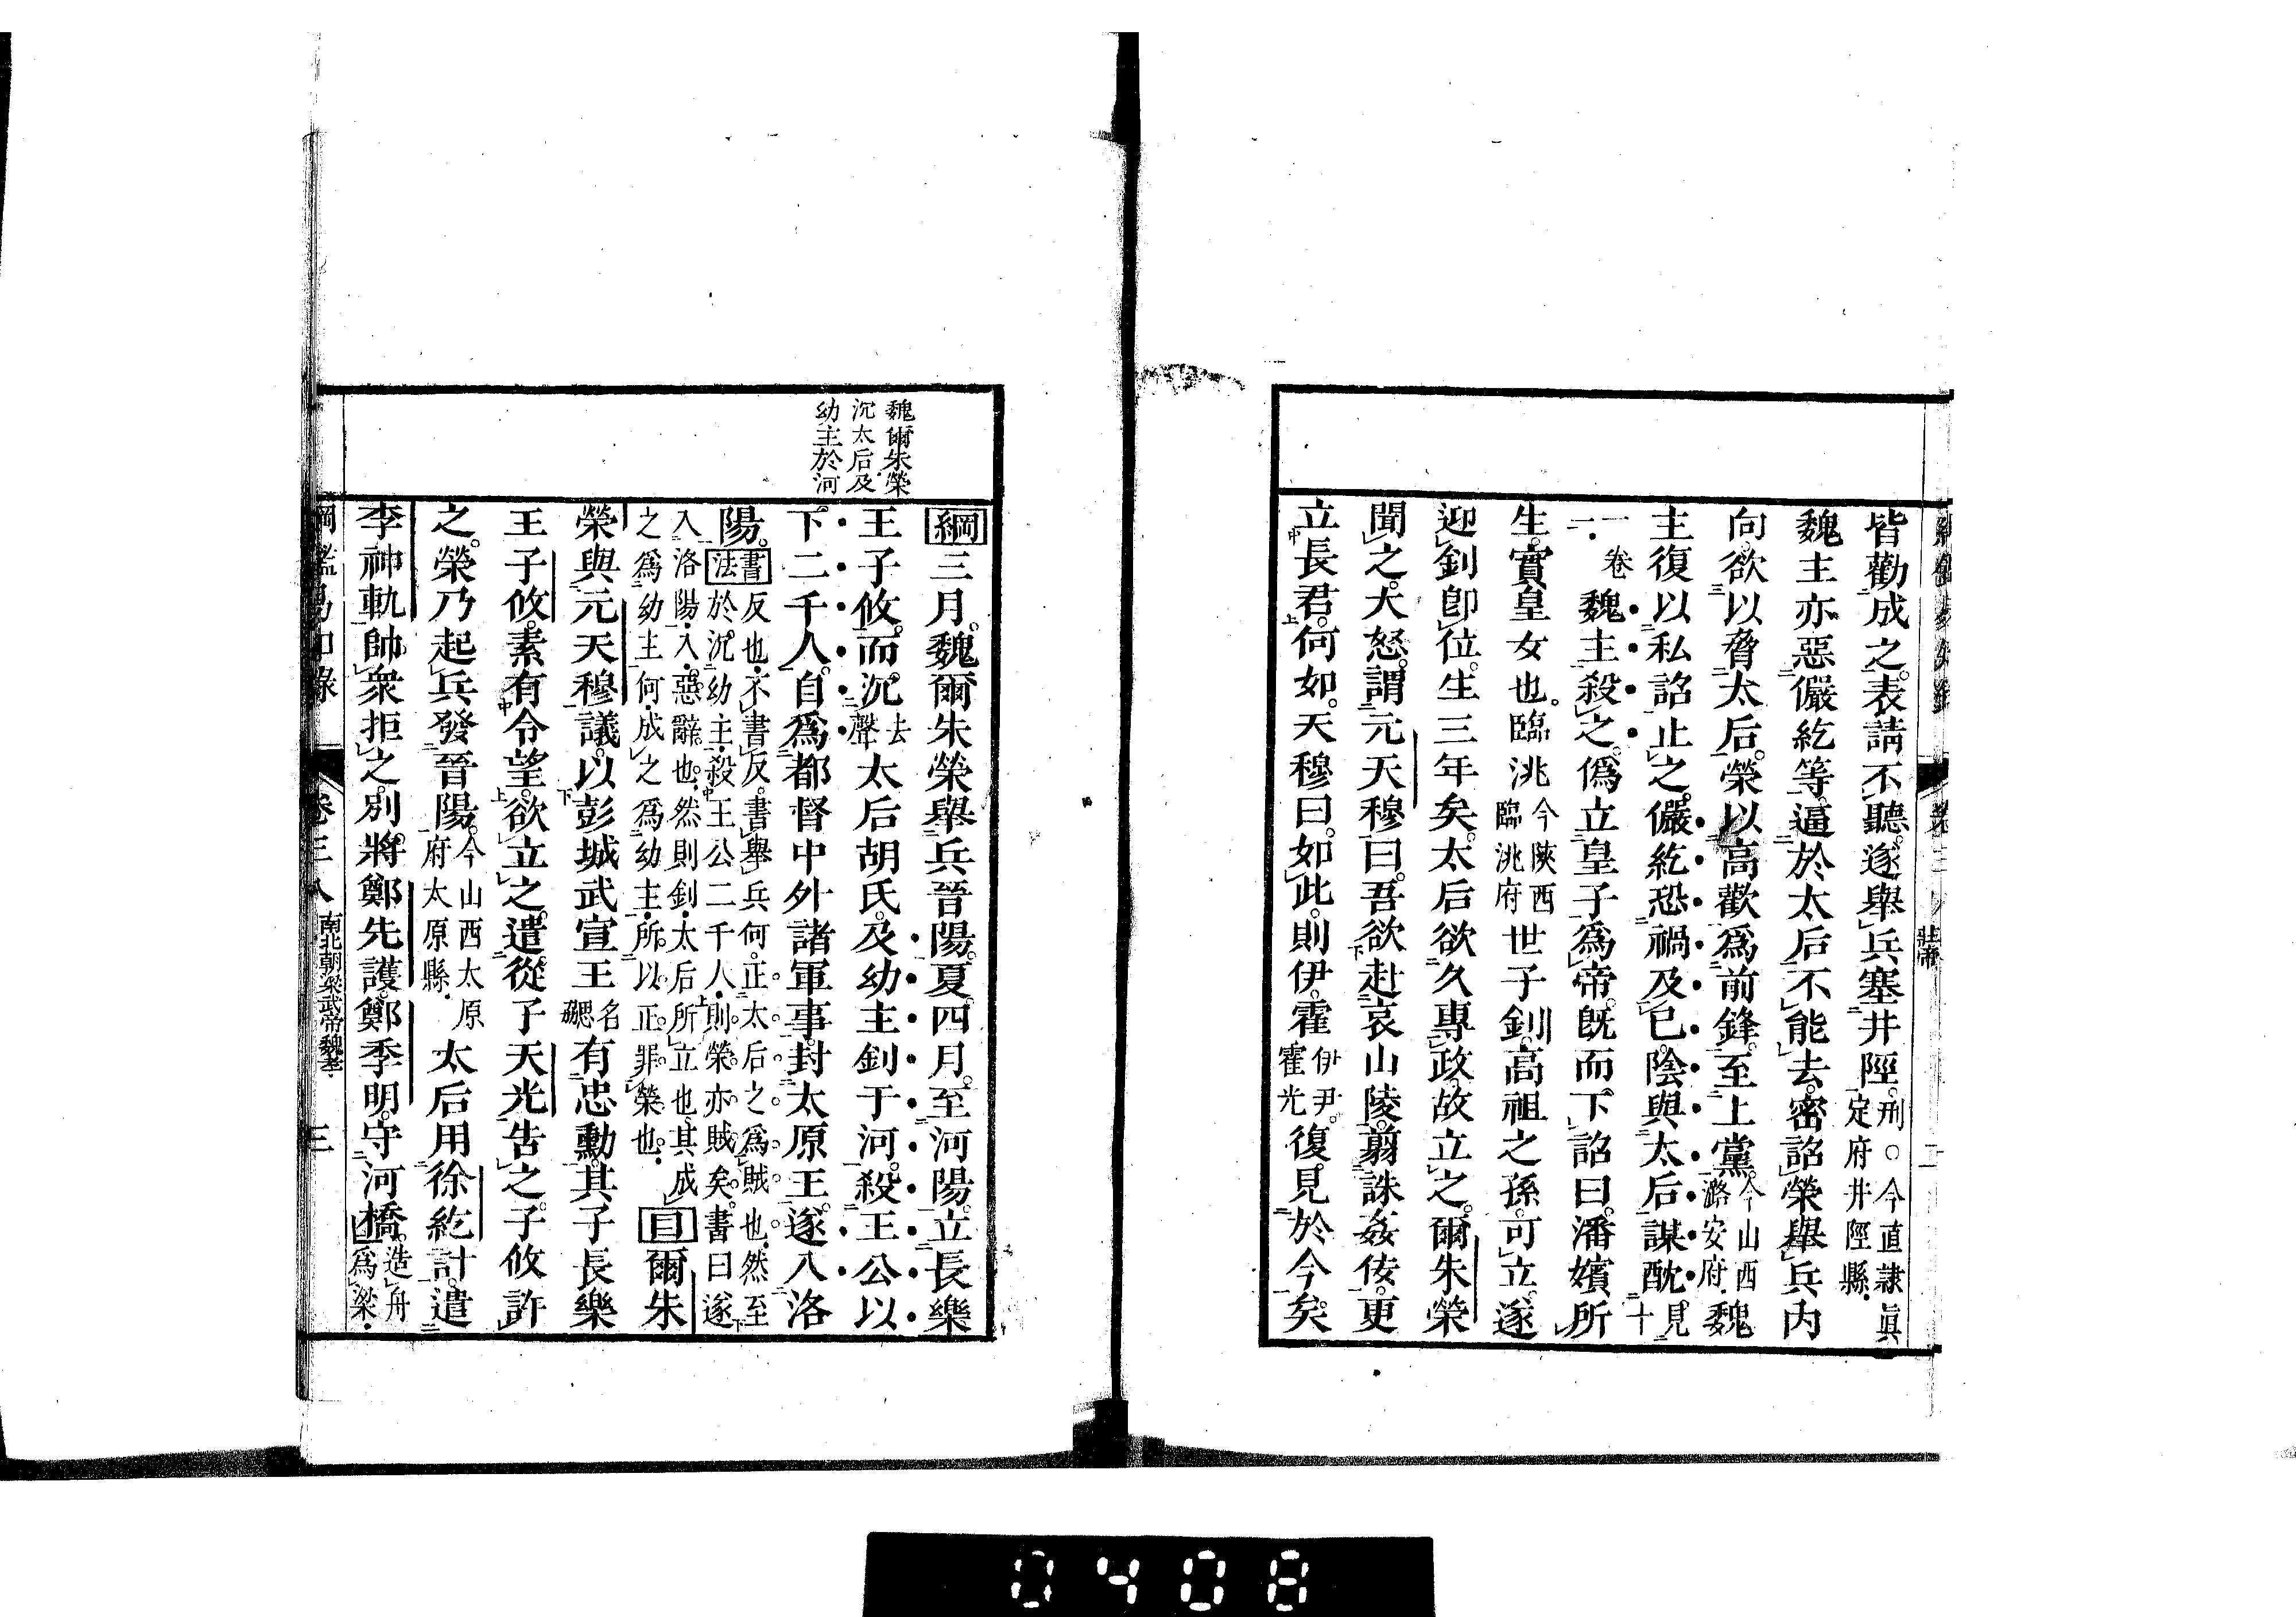 皆勸成之。表請不聽。遂舉兵塞井陘。刑○今直隷眞定府井陘縣
魏主亦惡儼紇等。逼於太后不能去。密詔榮舉兵內
向。欲以脅太后。榮以高歡爲前鋒。至上黨。今山西潞安府魏
主復以私詔止之。儼紇恐禍及已。陰與太后謀酖見二十
一卷魏主殺之。僞立皇子爲帝。旣而下詔曰。潘嬪所
生。實皇女也。臨洮今陝西臨洮府世子釗。高祖之孫。可立。遂
迎釗卽位。生三年矣。太后欲久專政。故立之。爾朱榮
聞之。大怒。謂元天穆曰。吾欲赴哀山陵。翦誅姦佞。更
立長君。何如。天穆曰。如此。則伊霍伊尹。霍光復見於今矣。
魏爾朱榮
沉太后及
幼主於河
綱三月。魏爾朱榮舉兵晉陽。夏。四月。至河陽。立長樂
王子攸。而沉去聲太后胡氏。及幼主釗于河。殺王公以
下二千人。自爲都督中外諸軍事。封太原王。遂入洛
陽。書法反也。不書反。書舉兵何。正太后之爲賊也。然至於沉幼主。殺王公二千人。則榮亦賊矣。書曰遂
入洛陽。入。惡辭也。然則釗。太后所立也。其成之爲幼主何。成之爲幼主。所以正罪榮也。目爾朱
榮與元天穆議。以彭城武宣王名勰有忠勳。其子長樂
王子攸。素有令望。欲立之。遣從子天光告之。子攸許
之。榮乃起兵發晉陽。今山西太原府太原縣太后用徐紇計。遣
李神軌帥衆拒之。別將鄭先護。鄭季明。守河橋。造舟爲梁
綱鑑易知錄 卷三八 南北朝梁武帝魏孝 三
0408